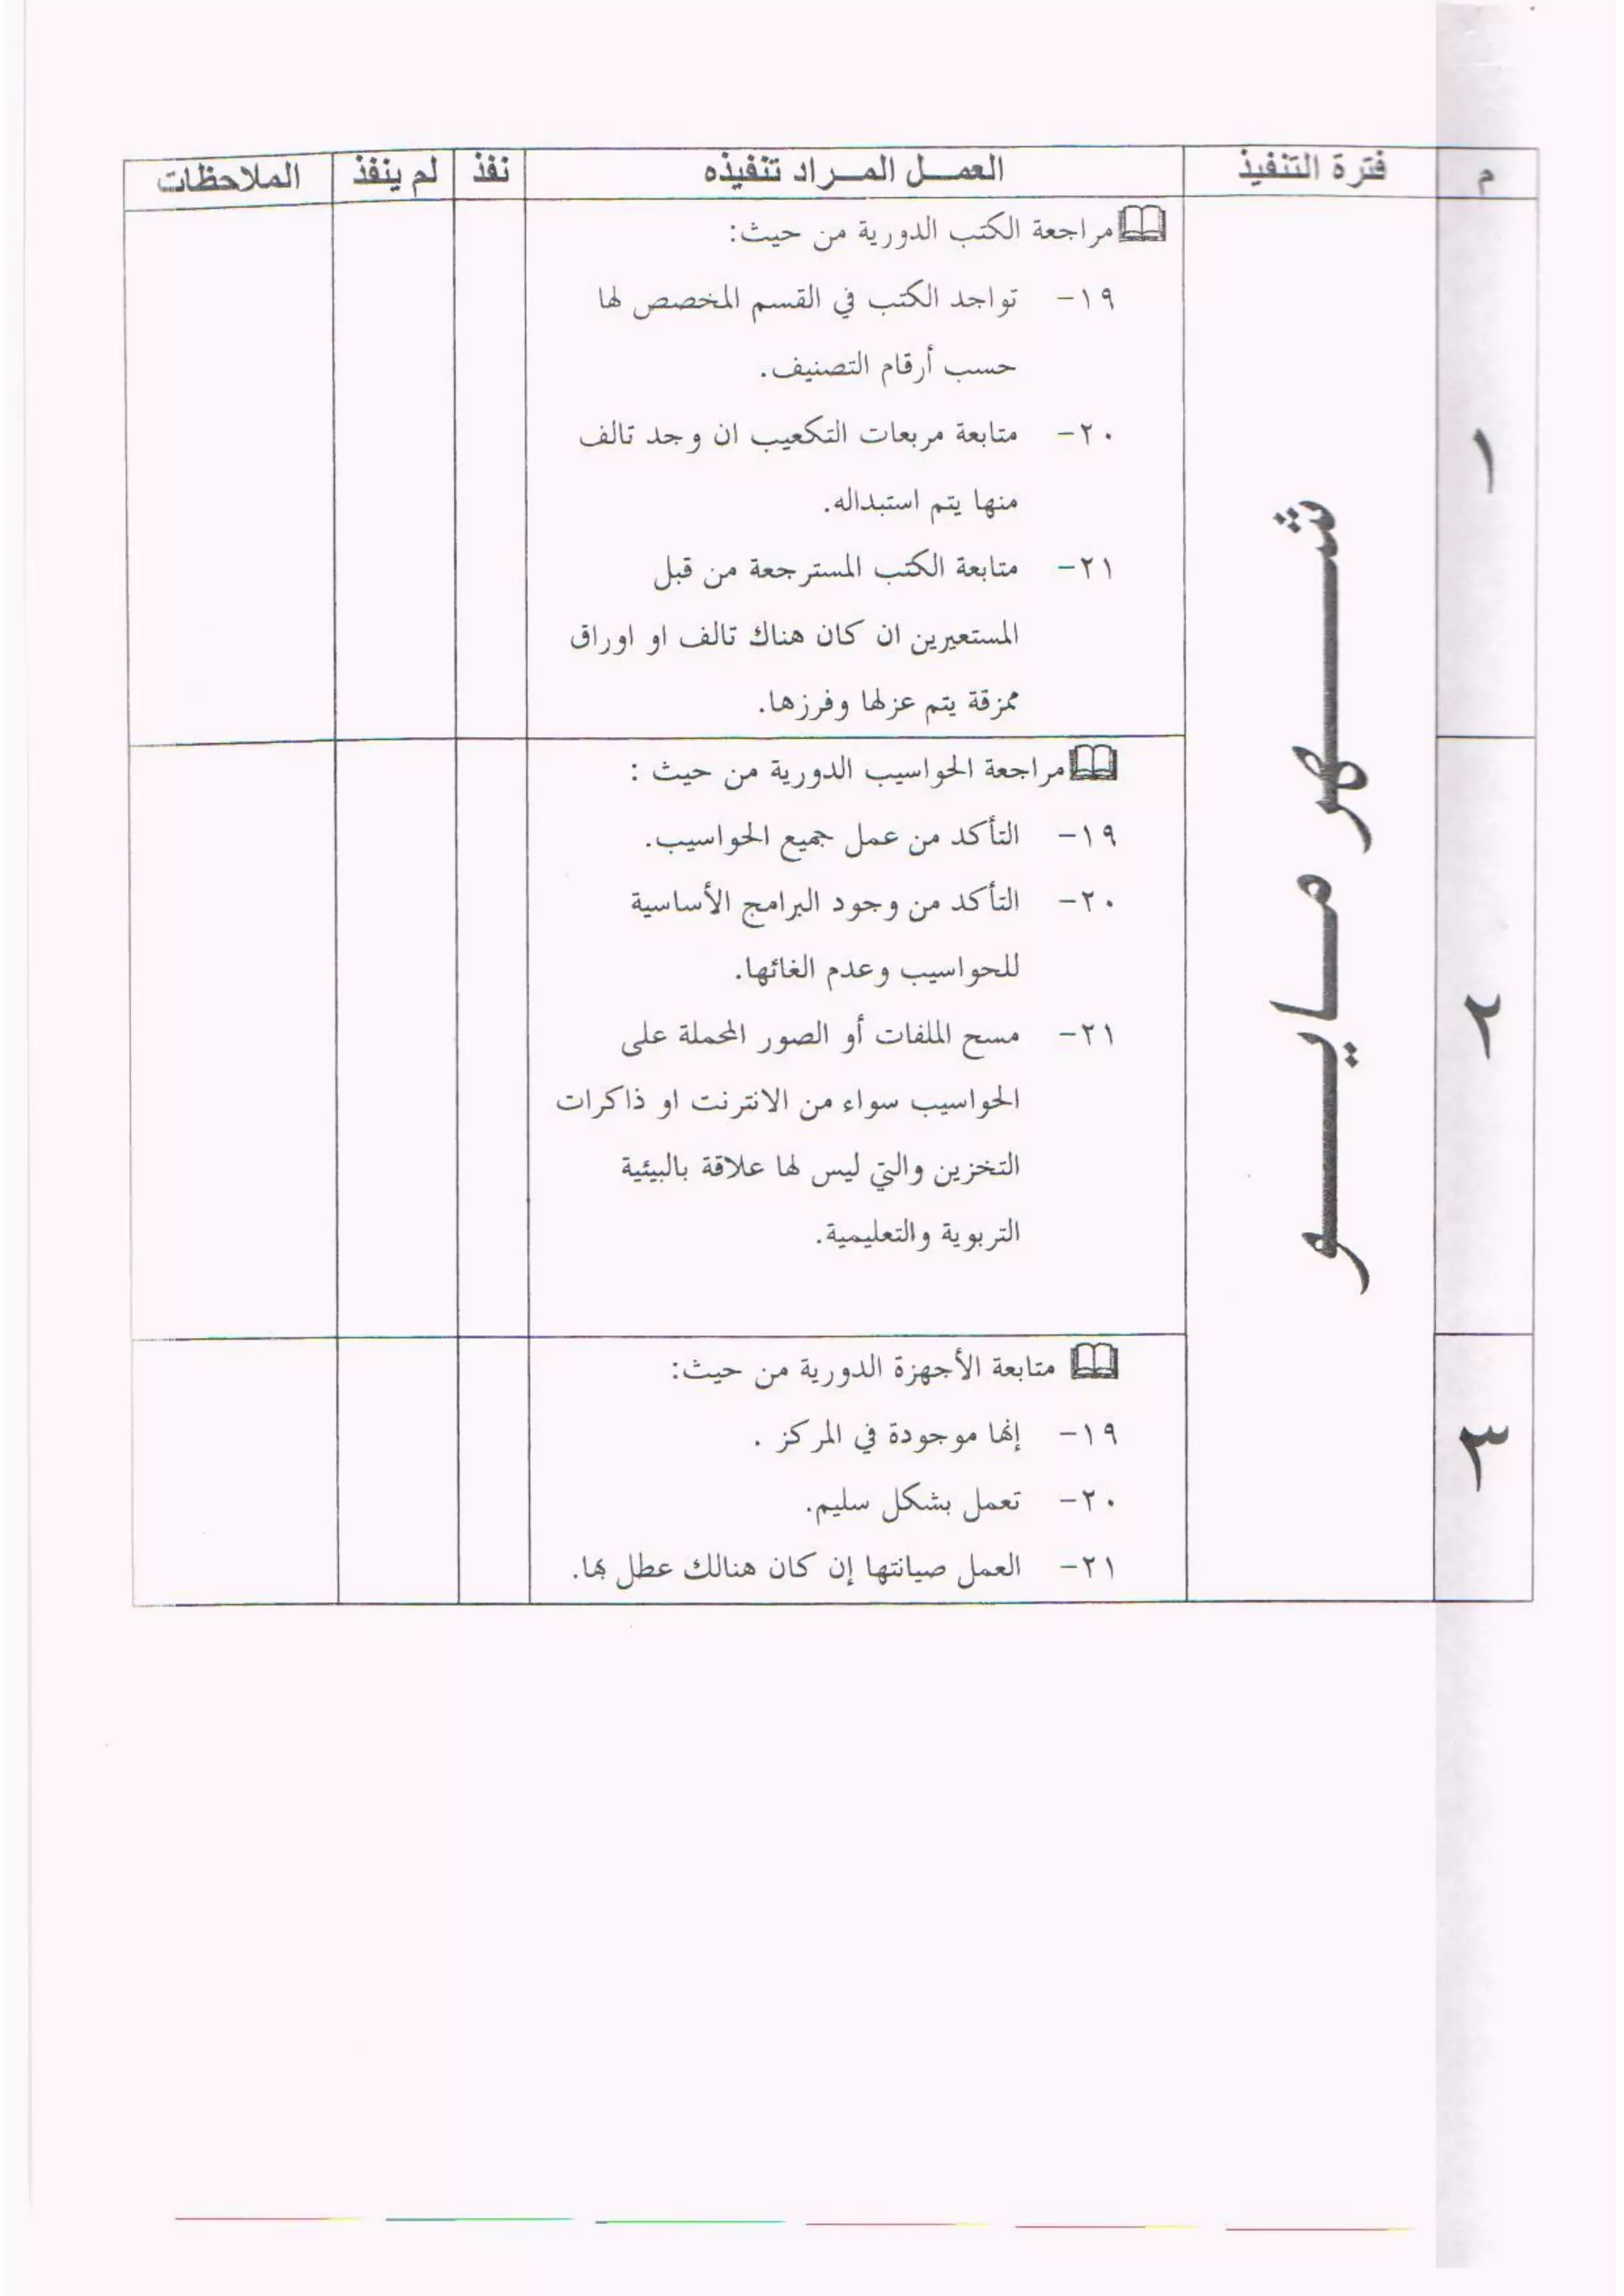 م فترة التنفيذ العمـل المـراد تنفيذه نفذ لم ينفذ الملاحظات
١
شـهر مـايـو
مراجعة الكتب الدورية من حيث:
١٩- تواجد الكتب في القسم المخصص لها
حسب أرقام التصنيف.
٢٠- متابعة مربعات التكعيب ان وجد تالف
منها يتم استبداله.
٢١- متابعة الكتب المسترجعة من قبل
المستعيرين ان كان هناك تالف او اوراق
ممزقة يتم عزلها وفرزها.
٢
مراجعة الحواسيب الدورية من حيث :
١٩- التأكد من عمل جميع الحواسيب.
٢٠- التأكد من وجود البرامج الأساسية
للحواسيب وعدم الغائها.
٢١- مسح الملفات أو الصور المحملة على
الحواسيب سواء من الانترنت او ذاكرات
التخزين والتي ليس لها علاقة بالبيئية
التربوية والتعليمية.
٣
متابعة الأجهزة الدورية من حيث:
١٩- إنها موجودة في المركز .
٢٠- تعمل بشكل سليم.
٢١- العمل صيانتها إن كان هنالك عطل بها.